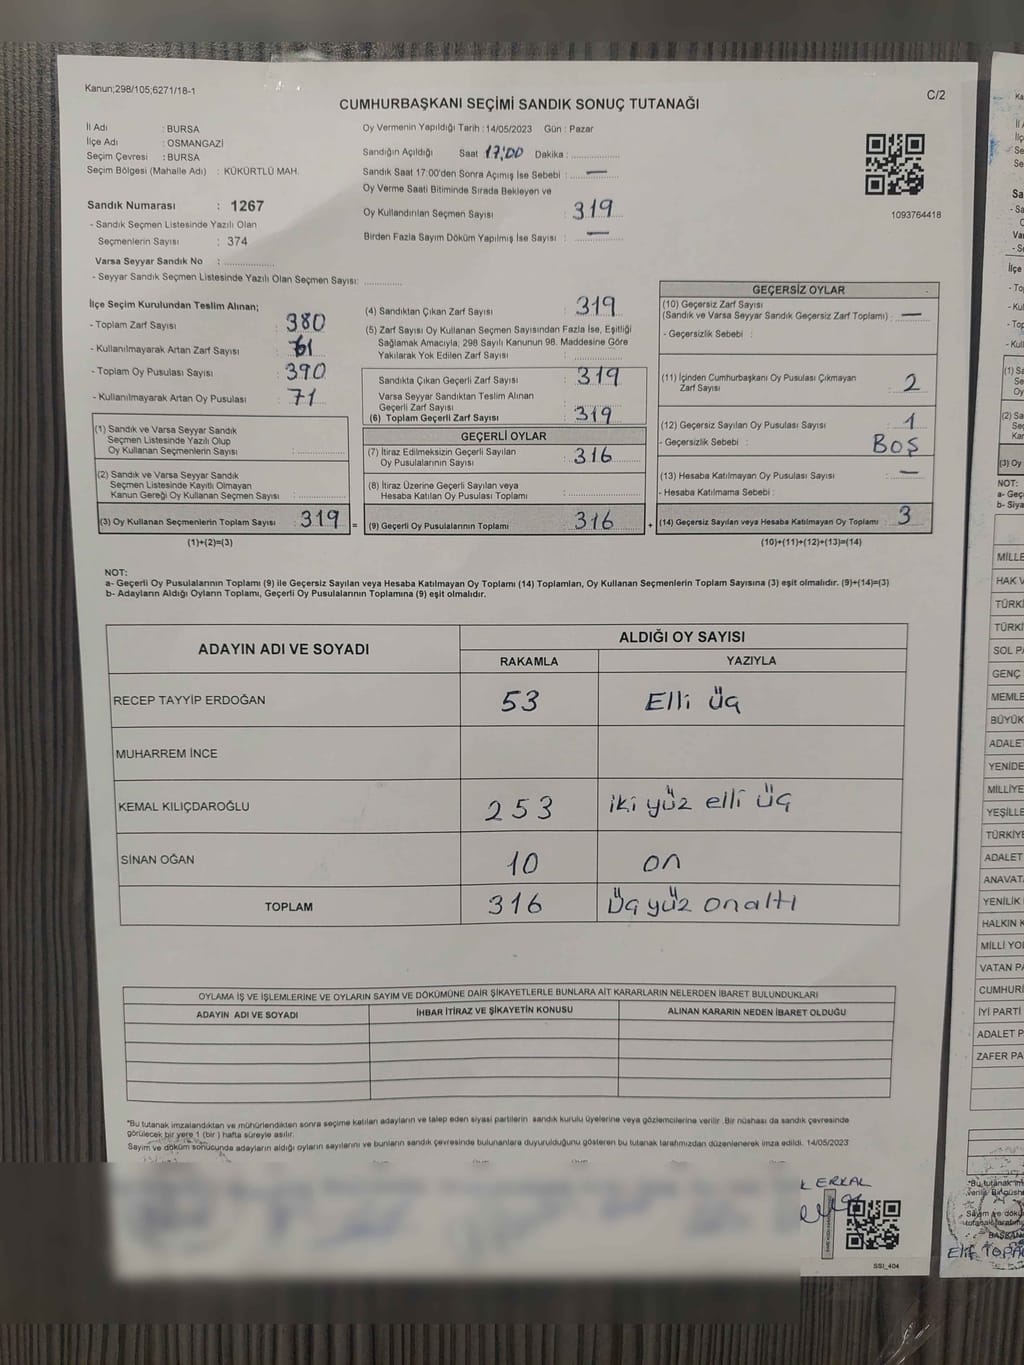 Kanun;298/105;6271/18-1
C/2
CUMHURBAŞKANI SEÇİMİ SANDIK SONUÇ TUTANAĞI
İl Adı : BURSA
İlçe Adı : OSMANGAZİ
Seçim Çevresi : BURSA
Seçim Bölgesi (Mahalle Adı) : KÜKÜRTLÜ MAH.
Sandık Numarası : 1267
- Sandık Seçmen Listesinde Yazılı Olan
Seçmenlerin Sayısı : 374
Varsa Seyyar Sandık No :
- Seyyar Sandık Seçmen Listesinde Yazılı Olan Seçmen Sayısı:
Oy Vermenin Yapıldığı Tarih : 14/05/2023 Gün : Pazar
Sandığın Açıldığı Saat 17:00 Dakika :
Sandık Saat 17:00'den Sonra Açımış İse Sebebi : —
Oy Verme Saati Bitiminde Sırada Bekleyen ve
Oy Kullandırılan Seçmen Sayısı : 319
Birden Fazla Sayım Döküm Yapılmış İse Sayısı : —
1093764418
İlçe Seçim Kurulundan Teslim Alınan;
- Toplam Zarf Sayısı : 380
- Kullanılmayarak Artan Zarf Sayısı : 61
- Toplam Oy Pusulası Sayısı : 390
- Kullanılmayarak Artan Oy Pusulası : 71
(1) Sandık ve Varsa Seyyar Sandık
Seçmen Listesinde Yazılı Olup
Oy Kullanan Seçmenlerin Sayısı :
(2) Sandık ve Varsa Seyyar Sandık
Seçmen Listesinde Kayıtlı Olmayan
Kanun Gereği Oy Kullanan Seçmen Sayısı :
(3) Oy Kullanan Seçmenlerin Toplam Sayısı : 319 =
(1)+(2)=(3)
(4) Sandıktan Çıkan Zarf Sayısı : 319
(5) Zarf Sayısı Oy Kullanan Seçmen Sayısından Fazla İse, Eşitliği
Sağlamak Amacıyla; 298 Sayılı Kanunun 98. Maddesine Göre
Yakılarak Yok Edilen Zarf Sayısı :
Sandıkta Çıkan Geçerli Zarf Sayısı : 319
Varsa Seyyar Sandıktan Teslim Alınan
Geçerli Zarf Sayısı :
(6) Toplam Geçerli Zarf Sayısı 319
GEÇERLİ OYLAR
(7) İtiraz Edilmeksizin Geçerli Sayılan
Oy Pusulalarının Sayısı : 316
(8) İtiraz Üzerine Geçerli Sayılan veya
Hesaba Katılan Oy Pusulası Toplamı :
(9) Geçerli Oy Pusulalarının Toplamı 316 +
GEÇERSİZ OYLAR
(10) Geçersiz Zarf Sayısı
(Sandık ve Varsa Seyyar Sandık Geçersiz Zarf Toplamı) : —
- Geçersizlik Sebebi :
(11) İçinden Cumhurbaşkanı Oy Pusulası Çıkmayan
Zarf Sayısı : 2
(12) Geçersiz Sayılan Oy Pusulası Sayısı : 1
- Geçersizlik Sebebi : BOŞ
(13) Hesaba Katılmayan Oy Pusulası Sayısı : —
- Hesaba Katılmama Sebebi :
(14) Geçersiz Sayılan veya Hesaba Katılmayan Oy Toplamı : 3
(10)+(11)+(12)+(13)=(14)
NOT:
a- Geçerli Oy Pusulalarının Toplamı (9) ile Geçersiz Sayılan veya Hesaba Katılmayan Oy Toplamı (14) Toplamları, Oy Kullanan Seçmenlerin Toplam Sayısına (3) eşit olmalıdır. (9)+(14)=(3)
b- Adayların Aldığı Oyların Toplamı, Geçerli Oy Pusulalarının Toplamına (9) eşit olmalıdır.
ADAYIN ADI VE SOYADI
ALDIĞI OY SAYISI
RAKAMLA YAZIYLA
RECEP TAYYİP ERDOĞAN 53 Elli üç
MUHARREM İNCE
KEMAL KILIÇDAROĞLU 253 iki yüz elli üç
SİNAN OĞAN 10 on
TOPLAM 316 Üç yüz onaltı
OYLAMA İŞ VE İŞLEMLERİNE VE OYLARIN SAYIM VE DÖKÜMÜNE DAİR ŞİKAYETLERLE BUNLARA AİT KARARLARIN NELERDEN İBARET BULUNDUKLARI
ADAYIN ADI VE SOYADI İHBAR İTİRAZ VE ŞİKAYETİN KONUSU ALINAN KARARIN NEDEN İBARET OLDUĞU
*Bu tutanak imzalandıktan ve mühürlendikten sonra seçime katılan adayların ve talep eden siyasi partilerin sandık kurulu üyelerine veya gözlemcilerine verilir. Bir nüshası da sandık çevresinde
görülecek bir yere 1 (bir) hafta süreyle asılır.
Sayım ve döküm sonucunda adayların aldığı oyların sayılarını ve bunların sandık çevresinde bulunanlara duyurulduğunu gösteren bu tutanak tarafımızdan düzenlenerek imza edildi. 14/05/2023
ERKAL
SSI_404
MİLLE
HAK V
TÜRKİ
TÜRKİ
SOL PA
GENÇ
MEMLE
BÜYÜK
ADALET
YENİDE
MİLLİYE
YEŞİLLE
TÜRKİYE
ADALET
ANAVATA
YENİLİK
HALKIN K
MİLLİ YOL
VATAN PA
CUMHURİ
İYİ PARTİ
ADALET P
ZAFER PA